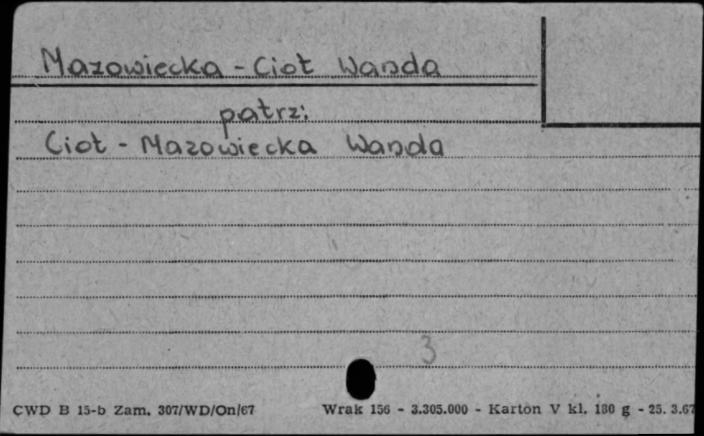 Mazowiecka - Ciot Wanda
patrz:
Ciot - Mazowiecka Wanda
3
CWD B 15-b Zam. 307/WD/On/67 Wrak 156 - 3.305.000 - Karton V kl. 180 g - 25. 3.67